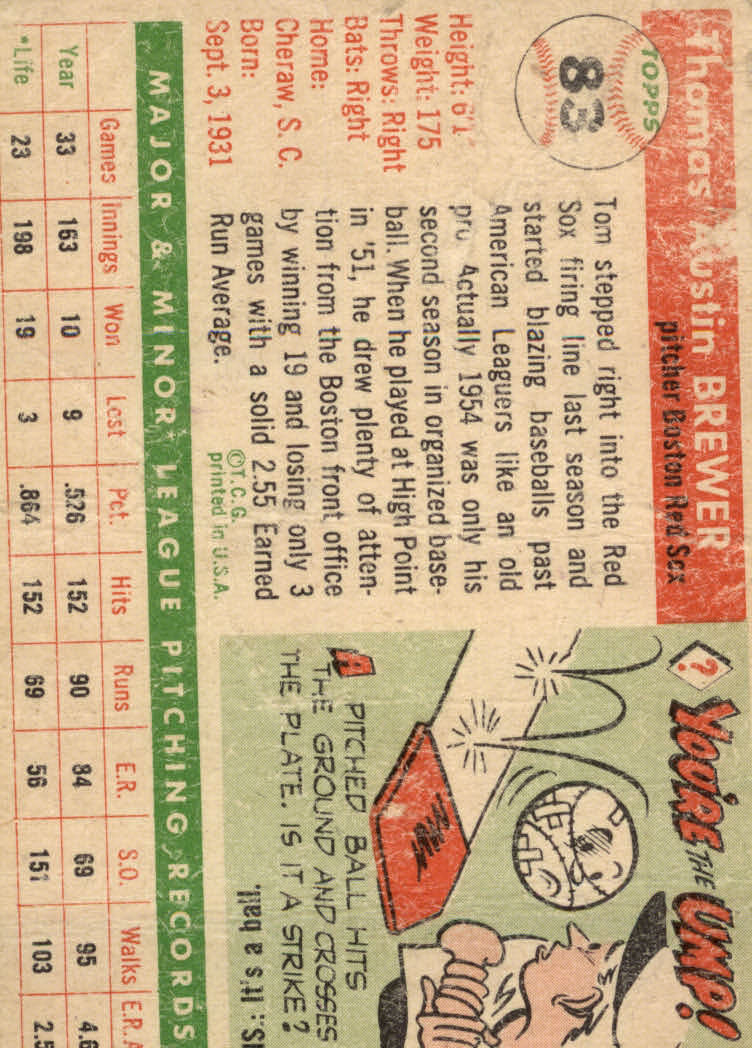 TOPPS
83
Thomas Austin BREWER
pitcher Boston Red Sox
Height: 6'1"
Weight: 175
Throws: Right
Bats: Right
Home:
Cheraw, S. C.
Born:
Sept. 3, 1931
Tom stepped right into the Red
Sox firing line last season and
started blazing baseballs past
American Leaguers like an old
pro. Actually 1954 was only his
second season in organized base-
ball. When he played at High Point
in '51, he drew plenty of atten-
tion from the Boston front office
by winning 19 and losing only 3
games with a solid 2.55 Earned
Run Average.
©T. C. G.
printed in U.S.A.
?
YOU'RE THE UMP!
HELP
A PITCHED BALL HITS
THE GROUND AND CROSSES
THE PLATE. IS IT A STRIKE?
It's a ball.
MAJOR & MINOR LEAGUE PITCHING RECORDS
Games Innings Won Lost Pct. Hits Runs E.R. S.O. Walks E.R.A
Year 33 163 10 9 .526 152 90 84 69 95 4.6
*Life 23 198 19 3 .864 152 69 56 151 103 2.5